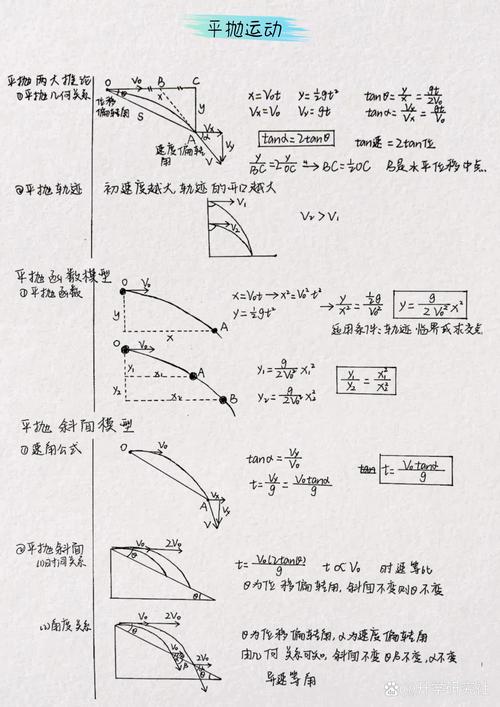 平抛运动
平抛两大推论
①平抛几何关系
O V₀ B C
θ x
位移偏转角 S y
A Vx
α
速度偏转角 V Vy
x=V₀t y=½gt² tanθ=y/x=gt/2V₀
Vx=V₀ Vy=gt tanα=Vy/Vx=gt/V₀
tanα=2tanθ tan速=2tan位
y/BC=2y/OC → BC=½OC B是水平位移中点.
②平抛轨迹 初速度越大,轨迹的开口越大
V₁
V₂
V₂>V₁
平抛函数模型
①平抛函数
O V₀
y
x A
x=V₀t→x²=V₀²t²
y=½gt²
→y/x²=½g/V₀² y=g/2V₀² x²
适用条件:轨迹临界或求交点
O V₀
y₁ x₁ A
y₂ x₂ B
y₁=g/2V₀² x₁²
y₂=g/2V₀² x₂²
y₁/y₂=x₁²/x₂²
平抛斜面模型
①速角公式
O V₀
A Vx
V Vy
tanα=Vy/V₀
t=Vy/g=V₀tanα/g
tan t=V₀tanα/g
②平抛斜面
(1)时间关系
V₀ 2V₀
θ
θ
t=V₀(2tanθ)/g t∝V₀ 时速等比
θ为位移偏转角,斜面不变则θ不变
(2)角度关系
V₀ 2V₀
θ
V₀ 2V₀
θ
θ为位移偏转角,α为速度偏转角
由几何关系可知,斜面不变θ不变,α不变
异速等角